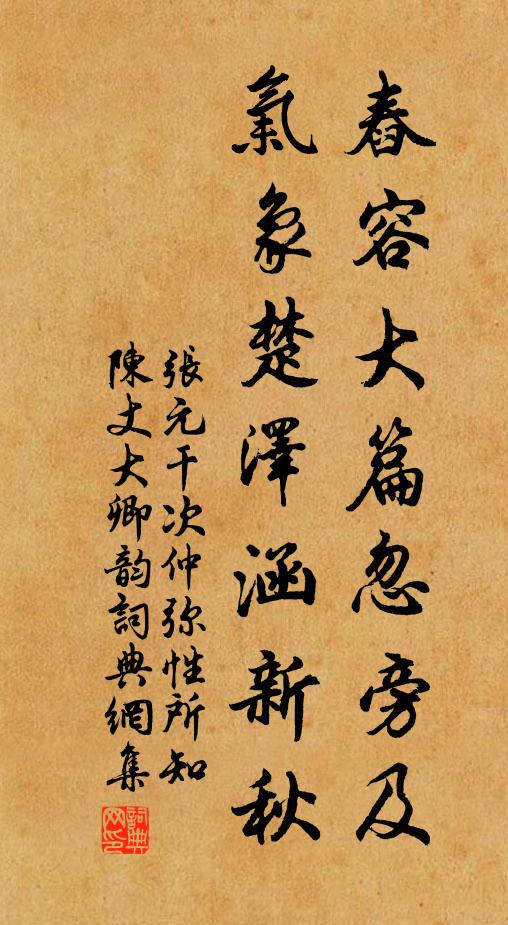 舂容大篇忽旁及
氣象楚澤涵新秋
張元干次仲弥性所知
陳丈大卿韵詞典網集
詞典网印